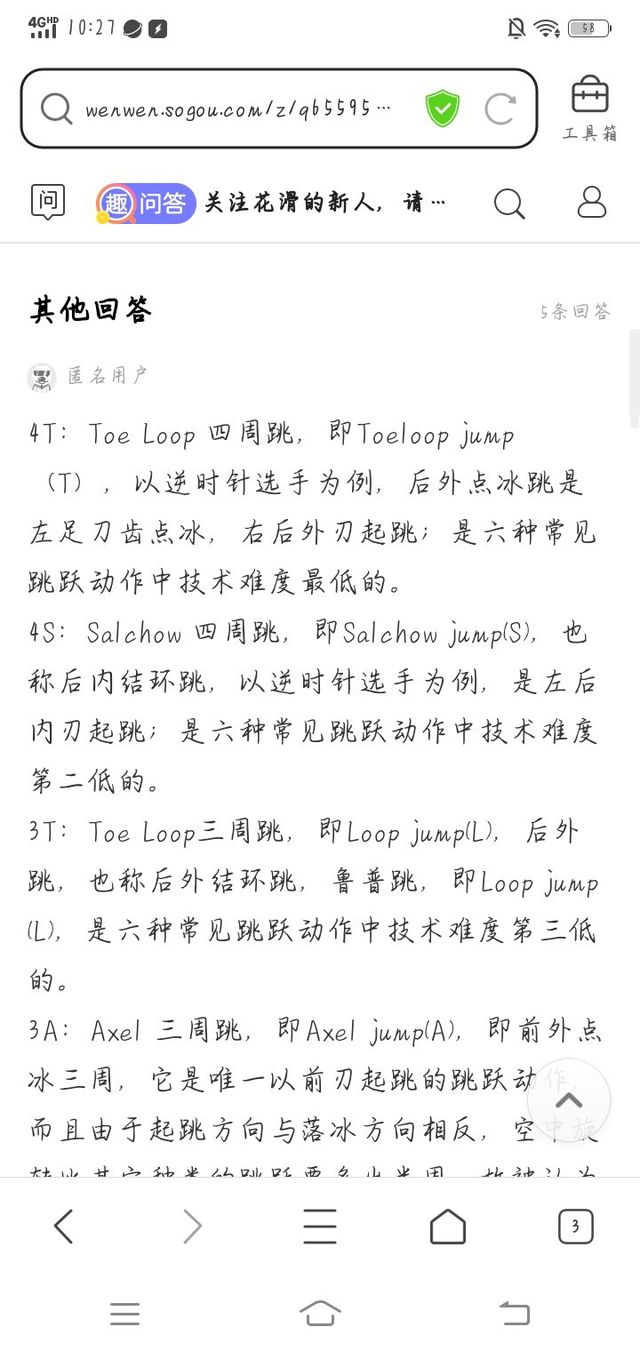 4GHD 10:27 58
wenwen.sogou.com/z/q65595…
工具箱
问 趣问答 关注花滑的新人，请…
其他回答 5条回答
匿名用户
4T：Toe Loop 四周跳，即Toeloop jump
（T），以逆时针选手为例，后外点冰跳是
左足刀齿点冰，右后外刃起跳；是六种常见
跳跃动作中技术难度最低的。
4S：Salchow 四周跳，即Salchow jump(S)，也
称后内结环跳，以逆时针选手为例，是左后
内刃起跳；是六种常见跳跃动作中技术难度
第二低的。
3T：Toe Loop三周跳，即Loop jump(L)，后外
跳，也称后外结环跳，鲁普跳，即Loop jump
(L)，是六种常见跳跃动作中技术难度第三低
的。
3A：Axel 三周跳，即Axel jump(A)，即前外点
冰三周，它是唯一以前刃起跳的跳跃动作，
而且由于起跳方向与落冰方向相反，空中旋
3